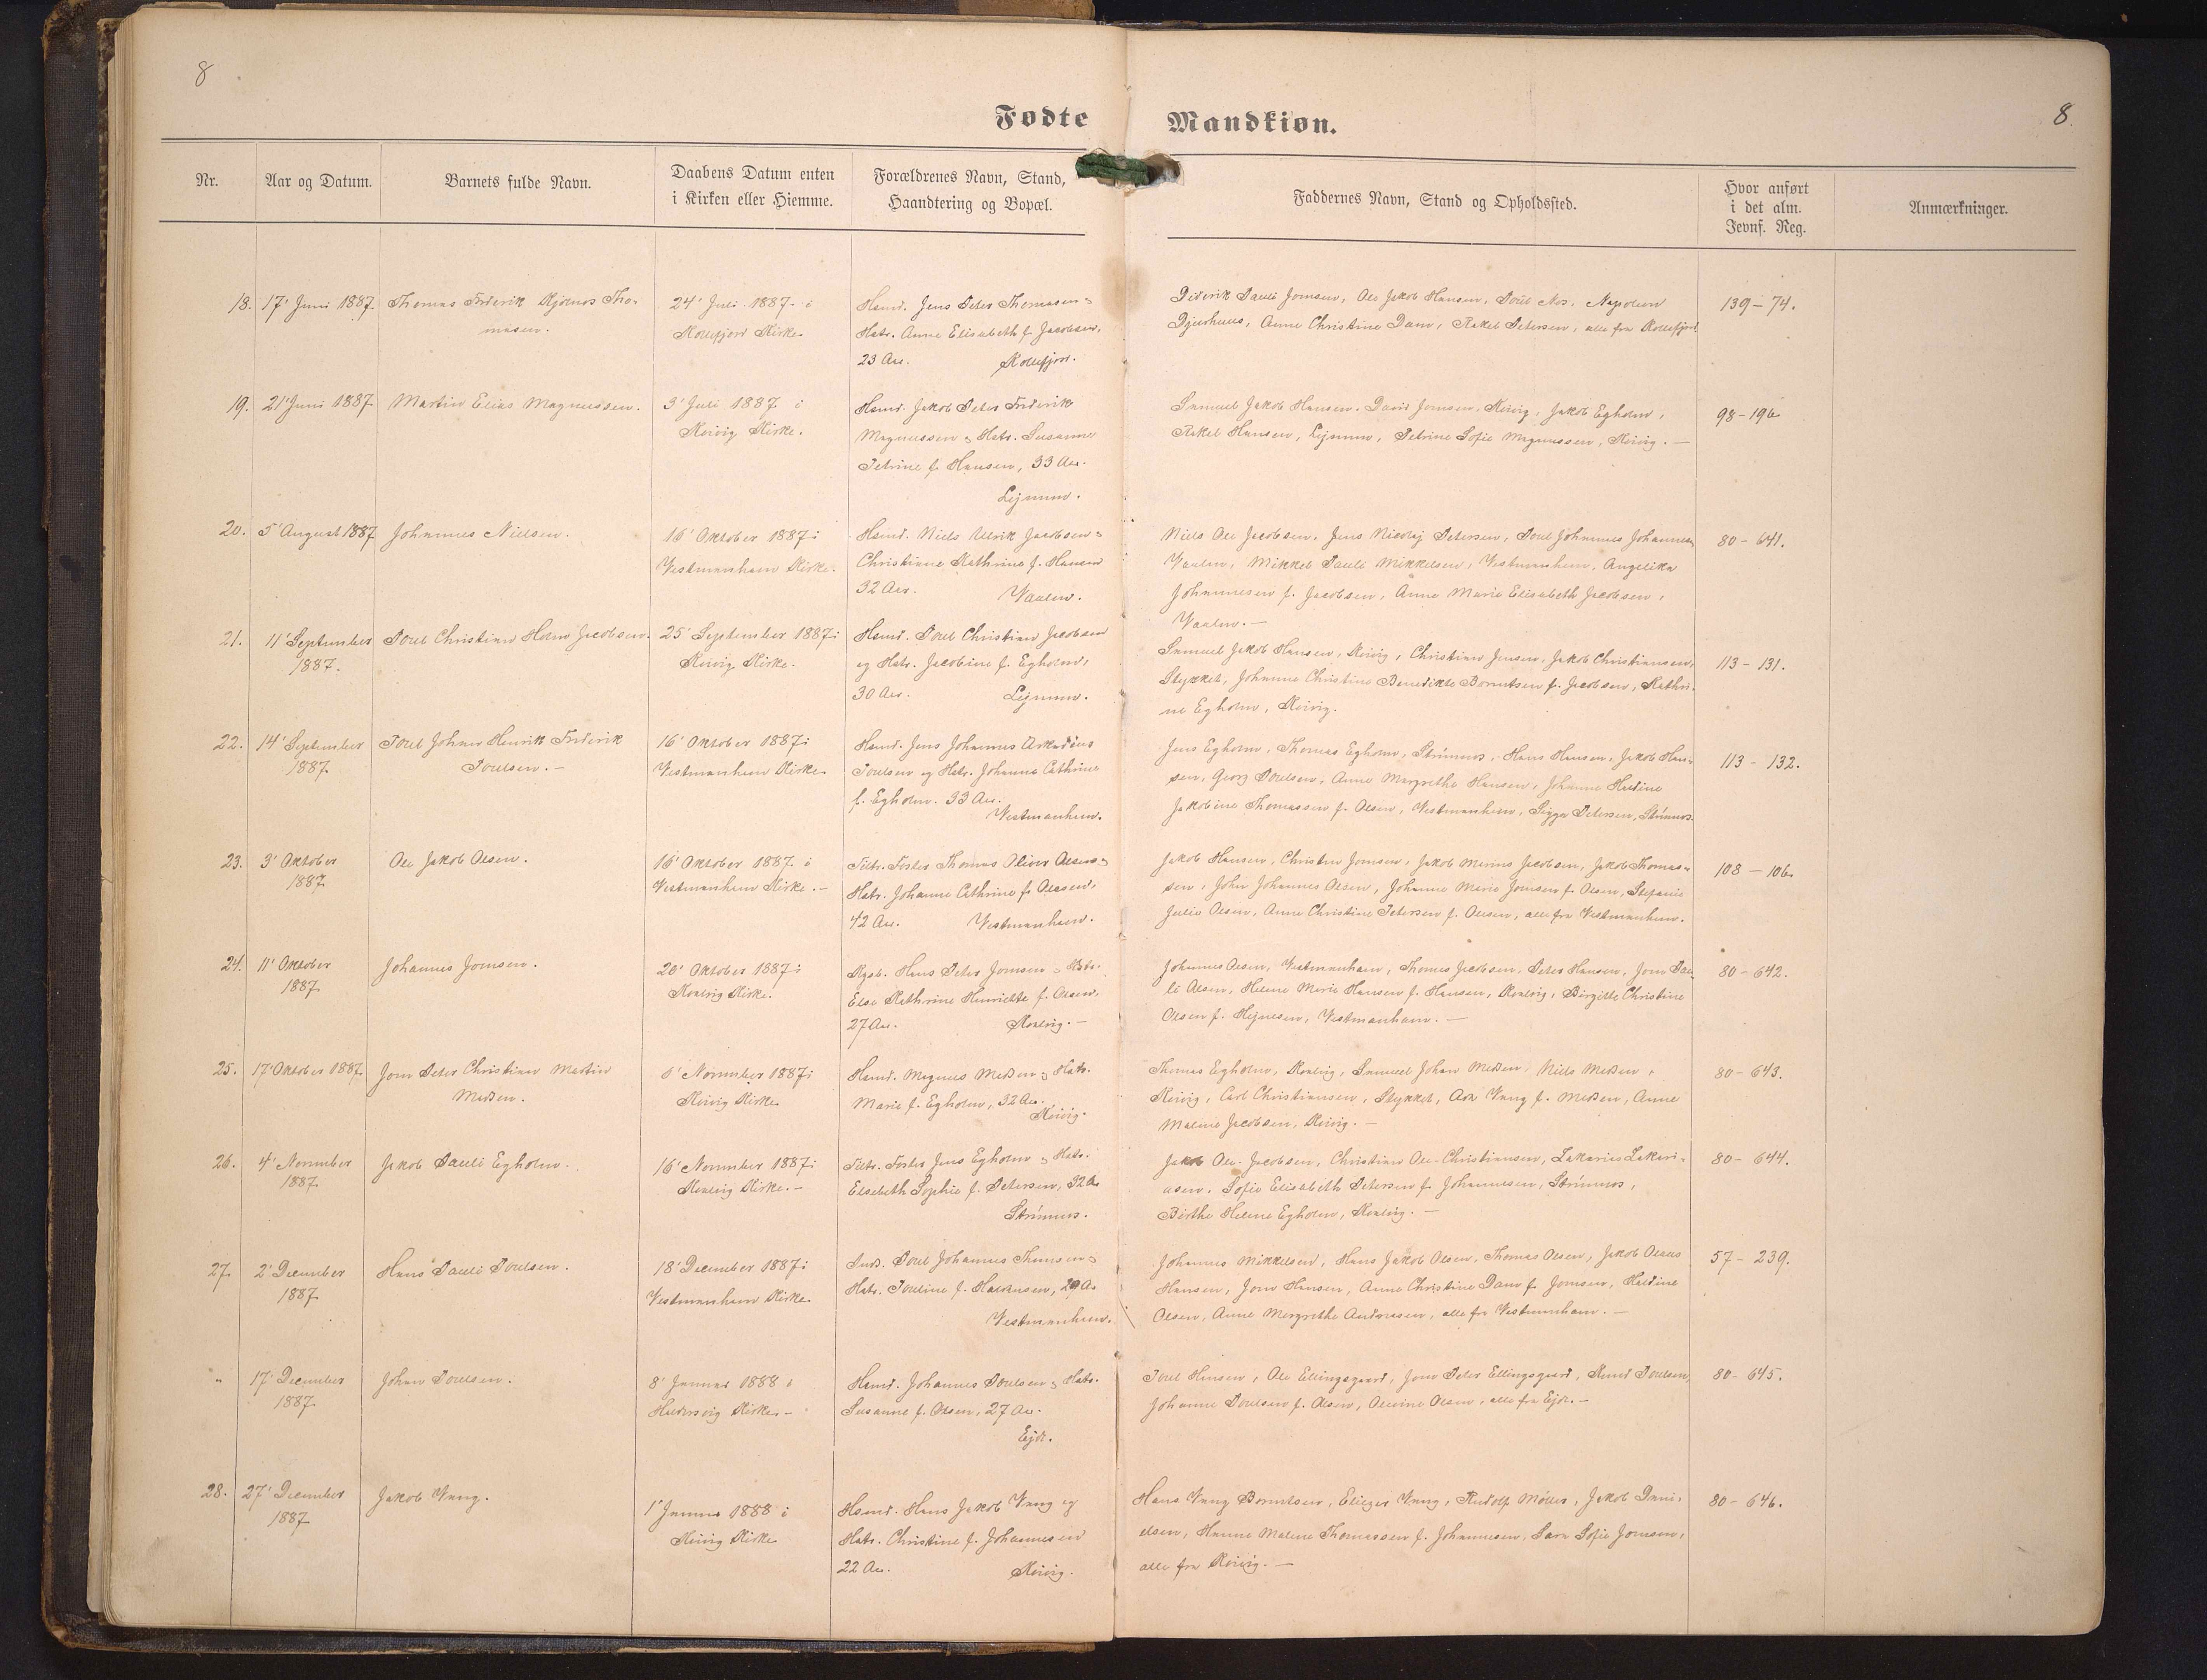 8
8.
Fødte Mandkiøn.
Nr.
Aar og Datum.
Barnets fulde Navn.
Daabens Datum enten
i Kirken eller Hiemme.
Forældrenes Navn, Stand,
Haandtering og Bopæl.
Faddernes Navn, Stand og Opholdssted.
Hvor anført
i det alm.
Jevnf. Reg.
Anmærkninger.
18. 17' Juni 1887. Thomas Frederik Tho-
masen.
24' Juli 1887 i
Kollefjord Kirke.
Hsmd. Jens Peter Thomasen &
Hstr. Anne Elisabeth f. Jacobsen,
23 Aar. Kollefjord.
Diderik Pauli Joensen, Ole Jakob Hansen, Poul Napoleon
Djurhuus, Anne Christine Dam, Rakel Petersen, alle fra Kollefjord
139-74.
19. 21' Juni 1887 Martin Elias Magnussen.
3' Juli 1887 i
Kvivig Kirke.
Hsmd. Jakob Peter Frederik
Magnussen & Hstr. Susanne
Petrine f. Hansen, 33 Aar.
Lejnum.
Samuel Jakob Hansen, David Joensen, Kvivig, Jakob Egholm,
Rakel Hansen, Lejnum, Petrine Sofie Magnussen, Kvivig. —
98-196
20. 5' August 1887 Johannes Nielsen.
16' Oktober 1887 i
Vestmanhavn Kirke.
Hsmd. Niels Ulrik Jacobsen &
Christiane Kathrine f. Hansen
32 Aar. Vaalen.
Niels Ole Jacobsen, Jens Nicolaj Petersen, Poul Johannes Johannesen
Vaalen, Mikkel Pauli Mikkelsen, Vestmanhavn, Angelika
Johannesen f. Jacobsen, Anne Marie Elisabeth Jacobsen,
Vaalen. —
80-641.
21. 11' September
1887.
Poul Christian Holm Jacobsen.
25' September 1887 i
Kvivig Kirke.
Hsmd. Poul Christian Jacobsen
og Hstr. Jacobine f. Egholm,
30 Aar. Lejnum.
Samuel Jakob Hansen, Kvivig, Christian Jensen, Jakob Christiansen,
Stykket, Johanne Christine Benedikte Berentsen f. Jacobsen, Kathri-
ne Egholm, Kvivig.
113-131.
22. 14' September
1887
Poul Johan Henrik Frederik
Poulsen. —
16' Oktober 1887 i
Vestmanhavn Kirke.
Hsmd. Jens Johannes
Poulsen og Hstr. Johanne Cathrine
f. Egholm. 33 Aar.
Vestmanhavn.
Jens Egholm, Thomas Egholm, Hans Hansen, Jakob Han-
sen, Georg Poulsen, Anne Margrethe Hansen, Johanne
Jakobine Thomassen f. Olsen, Vestmanhavn, Sigga Petersen,
113-132.
23. 3' Oktober
1887
Ole Jakob Olsen.
16' Oktober 1887 i
Vestmanhavn Kirke. —
Thomas Oliver Olsen &
Hstr. Johanne Cathrine f. Olesen,
42 Aar. Vestmanhavn.
Jakob Hansen, Christen Joensen, Jakob Marius Jacobsen, Jakob Thomas-
sen, John Johannes Olsen, Johanne Marie Joensen f. Olsen, Stefanie
Julie Olsen, Anne Christine Petersen f. Olesen, alle fra Vestmanhavn.
108-106.
24. 11' Oktober
1887
Johannes Joensen.
20' Oktober 1887 i
Kvalvig Kirke.
Hans Peter Joensen & Hstr.
Else Kathrine Henriette f. Olsen,
27 Aar. Kvalvig. —
Johannes Olsen, Vestmanhavn, Thomas Jacobsen, Peter Hansen, Joen Pau-
li Olsen, Helene Marie Hansen f. Hansen, Kvalvig, Birgitte Christine
Olsen f. Hejnesen, Vestmanhavn. —
80-642.
25. 17' Oktober 1887 Joen Peter Christian Martin
Madsen.
November 1887 i
Kvivig Kirke
Hsmd. Magnus Madsen & Hstr.
Marie f. Egholm, 32 Aar.
Kvivig.
Thomas Egholm, Kvalvig, Samuel Johan Madsen, Niels Madsen,
Kvivig, Carl Christiansen, Stykket, Vang f. Madsen, Anne
Malene Jacobsen, Kvivig. —
80-643.
26. 4' November
1887
Jakob Pauli Egholm.
16' November 1887 i
Kvalvig Kirke. —
Jens Egholm & Hstr.
Elsebeth Sophie f. Petersen, 32 A
Jakob Ole Jacobsen, Christian Ole Christiansen, Zakarias Zakari-
asen, Sofie Elisabeth Petersen f. Johannesen,
Birthe Helene Egholm, Kvalvig. —
80-644.
27. 2' December
1887
Hans Pauli Poulsen.
18' December 1887 i
Vestmanhavn Kirke.
Poul Johannes &
Hstr. Pouline f.
Vestmanhavn.
Johannes Mikkelsen, Hans Jakob Olsen, Thomas Olsen, Jakob
Hansen, Joen Hansen, Anne Christine Dam f. Joensen,
Olsen, Anne Margrethe Andreasen, alle fra Vestmanhavn. —
57-239.
" 17' December
1887
Johan Poulsen.
8' Januar 1888 i
Haldersvig Kirke. —
Hsmd. Johannes Poulsen & Hstr.
Susanne f. Olsen, 27 Aar.
Ejde.
Poul Hansen, Ole Ellingsgaard, Joen Peter Ellingsgaard, Knud Poulsen,
Johanne Poulsen f. Olsen, Olevine Olsen, alle fra Ejde. —
80-645.
28. 27' December
1887
Jakob Vang.
1' Januar 1888 i
Kvivig Kirke
Hsmd. Hans Jakob Vang og
Hstr. Christine f. Johannesen
22 Aar. Kvivig.
Hans Vang Berentsen, Elieser Vang, Rudolf Möller, Jakob Dani-
elsen, Hanne Malene Thomassen f. Johannesen, Sara Sofie Joensen,
alle fra Kvivig. —
80-646.